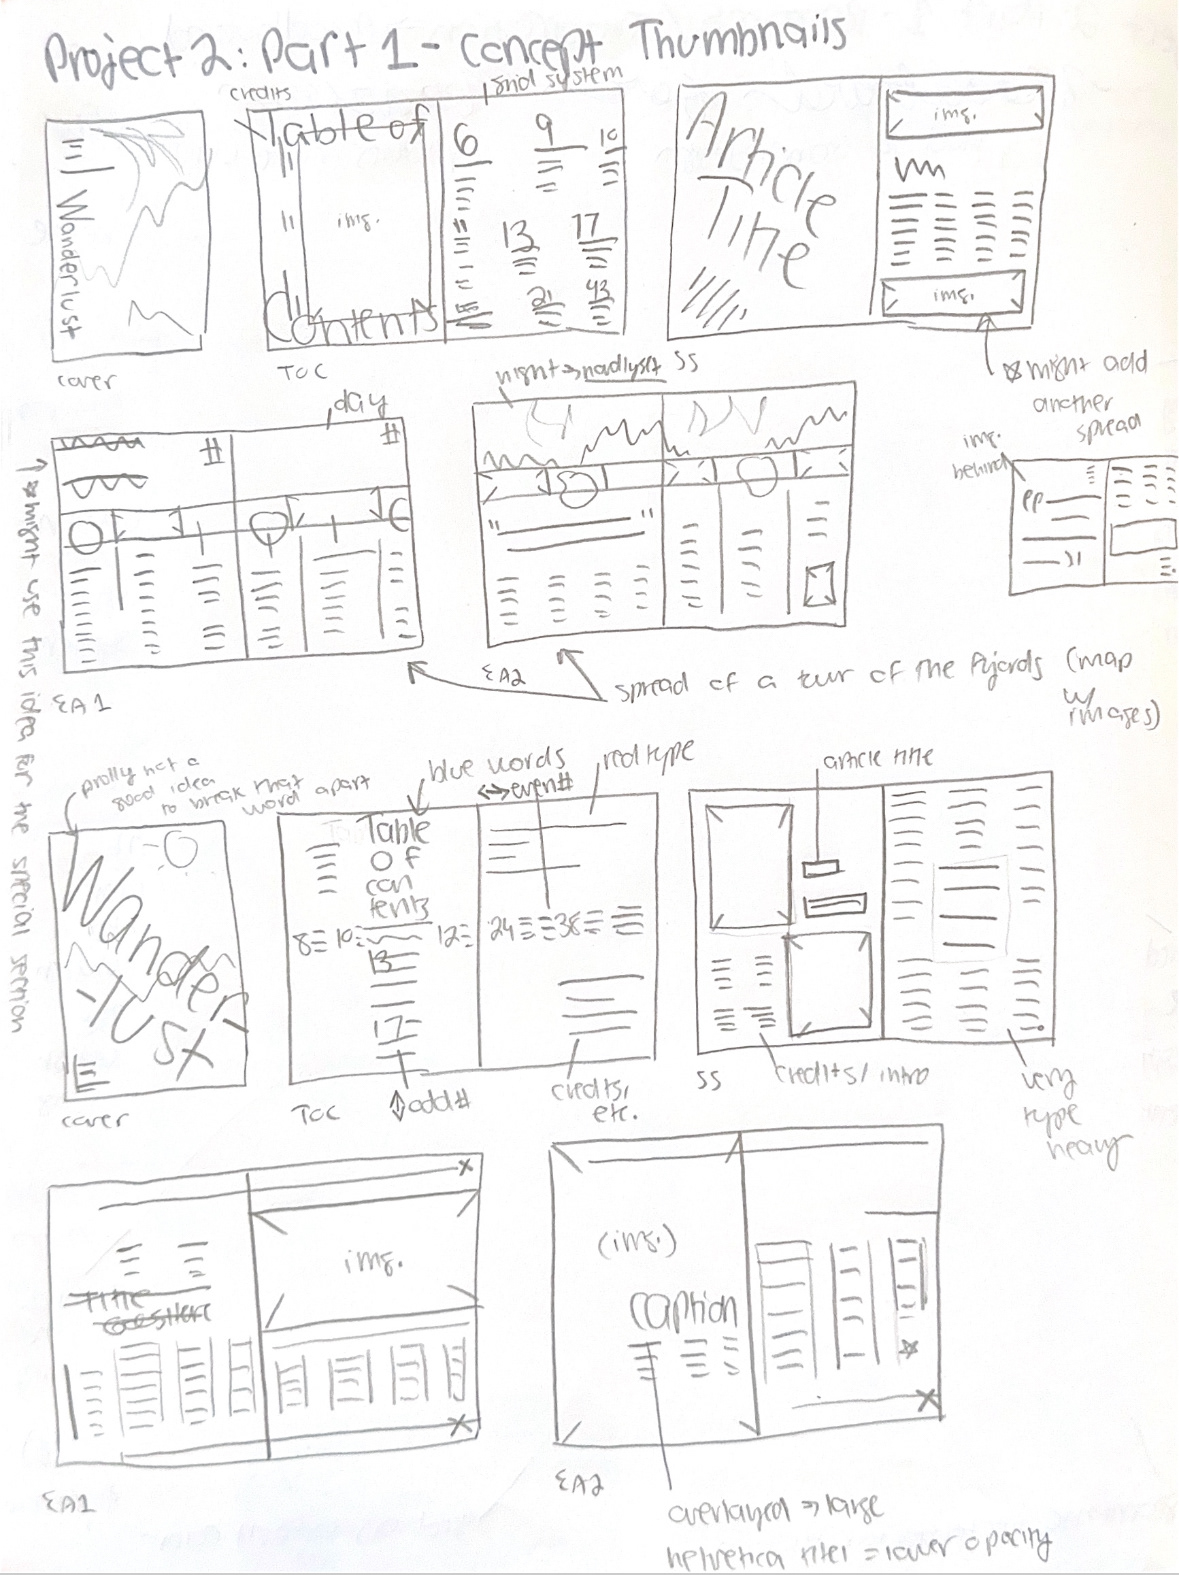 Project 2: Part 1 - Concept Thumbnails
credits
grid system
Wanderlust
cover
Table of
Contents
img.
6 9 10
13 17
21 43
TOC
Article
Title
img.
img.
SS
☆ might add
another
spread
img.
behind
day
#
#
EA1
night →
" "
EA2
spread of a tour of the fjords (map
w/
images)
↑ ☆ might use this idea for the special section
prolly not a
good idea
to break that
word apart
Wander
-lust
cover
blue words
↔ even#
red type
Table
of
con
tents
8 10 12 24 38
13
17
TOC
↕ odd#
credits,
etc.
article title
SS
credits/intro
very
type
heavy
x
img.
Title
Goes Here
x
EA1
(img.)
caption
☆
x
EA2
overlayed → large
helvetica = lower opacity